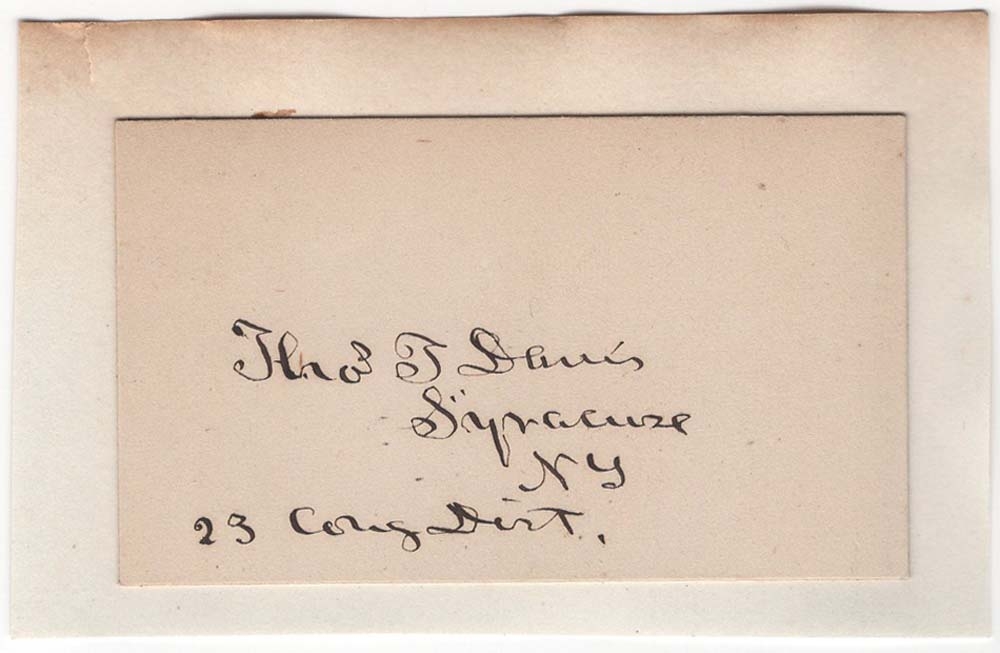 Thos T Davis
Syracuse
NY
23 Cong Dist.